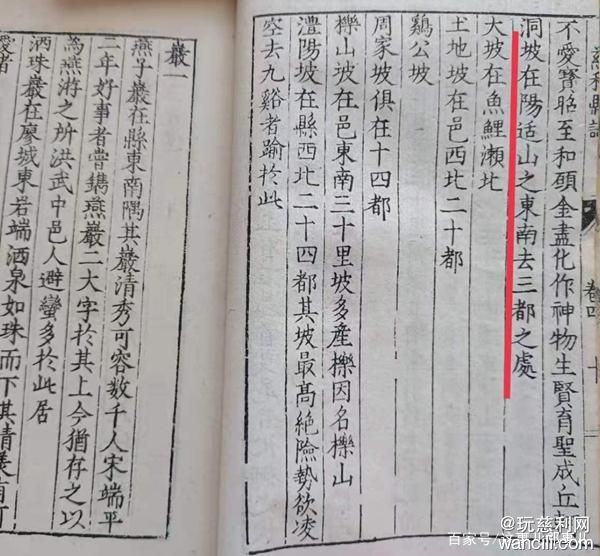 慈利縣誌
卷四
十
不愛寳晗至和頭金盡化作神物生賢育聖成丘
洞坡在陽适山之東南去三都之處
大坡在魚鯉瀨北
土地坡在邑西北二十都
鷄公坡
周家坡俱在十四都
櫟山坡在邑東南三十里坡多產櫟因名櫟山
澧陽坡在縣西北二十四都其坡最高絕險勢欲凌
空去九谿者踰於此
巖一
燕子巖在縣東南隅其巖清秀可容数千人宋端平
二年好事者嘗鐫燕巖二大字於其上今猶存之以
為燕游之所洪武中邑人避蠻多於此居
洒珠巖在廖城東岩端洒泉如珠而下其清美有可
愛者
百家号/
@玩慈利网
wancili.com